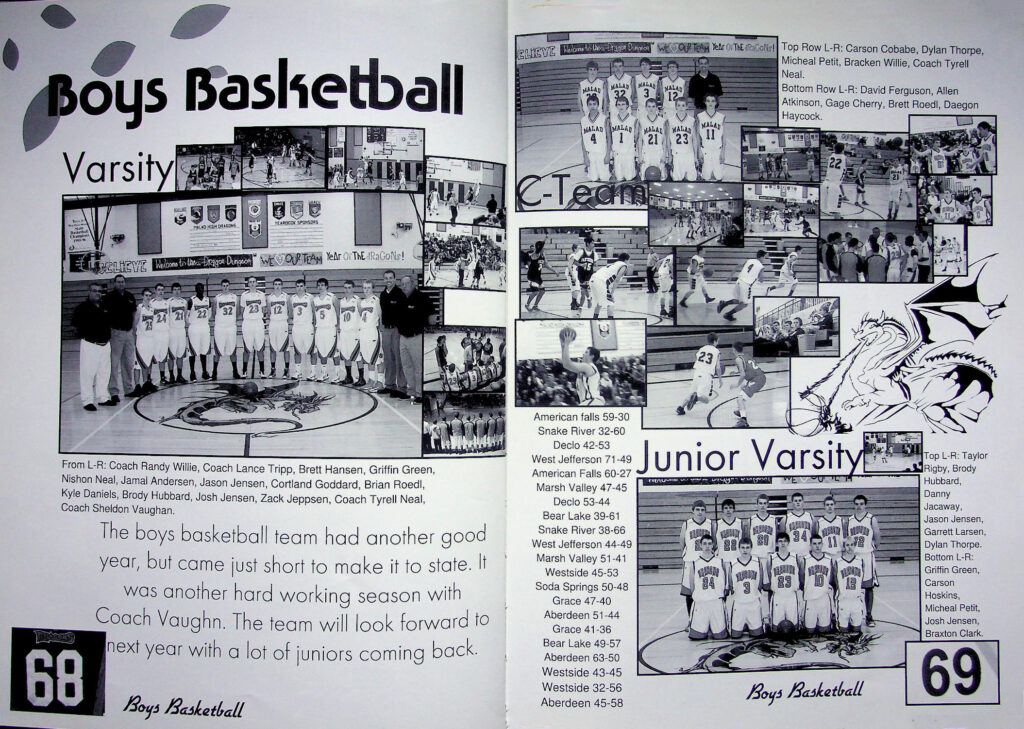 Boys Basketball
Varsity
MALAD HIGH DRAGONS
YEARBOOK SPONSORS
BELIEVE
Welcome to the Dragon Dungeon
WE OUR TEAM
YEAR OF THE DRAGONS!
21
22
32
23
12
3
5
10
From L-R: Coach Randy Willie, Coach Lance Tripp, Brett Hansen, Griffin Green,
Nishon Neal, Jamal Andersen, Jason Jensen, Cortland Goddard, Brian Roedl,
Kyle Daniels, Brody Hubbard, Josh Jensen, Zack Jeppsen, Coach Tyrell Neal,
Coach Sheldon Vaughan.
The boys basketball team had another good
year, but came just short to make it to state. It
was another hard working season with
Coach Vaughn. The team will look forward to
next year with a lot of juniors coming back.
68
Boys Basketball
ELIEVE
Welcome to the Dragon Dungeon
WE OUR TEAM
YEAR OF THE DRAGONS!
MALAD
32
3
12
MALAD
4
MALAD
1
MALAD
21
MALAD
23
MALAD
11
Top Row L-R: Carson Cobabe, Dylan Thorpe,
Micheal Petit, Bracken Willie, Coach Tyrell
Neal.
Bottom Row L-R: David Ferguson, Allen
Atkinson, Gage Cherry, Brett Roedl, Daegon
Haycock.
C-Team
22
23
4
23
American falls 59-30
Snake River 32-60
Declo 42-53
West Jefferson 71-49
American Falls 60-27
Marsh Valley 47-45
Declo 53-44
Bear Lake 39-61
Snake River 38-66
West Jefferson 44-49
Marsh Valley 51-41
Westside 45-53
Soda Springs 50-48
Grace 47-40
Aberdeen 51-44
Grace 41-36
Bear Lake 49-57
Aberdeen 63-50
Westside 43-45
Westside 32-56
Aberdeen 45-58
Junior Varsity
34
11
32
24
3
23
10
12
Top L-R: Taylor
Rigby, Brody
Hubbard,
Danny
Jacaway,
Jason Jensen,
Garrett Larsen,
Dylan Thorpe.
Bottom L-R:
Griffin Green,
Carson
Hoskins,
Micheal Petit,
Josh Jensen,
Braxton Clark.
Boys Basketball
69